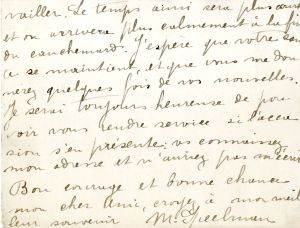 vailler. Le temps ainsi sera plus court
et on arrivera plus calmement à la fin
du cauchemard. J'espère que votre san
té se maintient et que vous me don
nerez quelques fois de vos nouvelles.
Je serai toujours heureuse de pou
voir vous rendre service si l'occa
sion s'en présente. vs connaissez
mon adresse et n'aurez pas
Bon courage et bonne chance
mon cher Ami, croyez à mon meil
leur souvenir M. Speelman